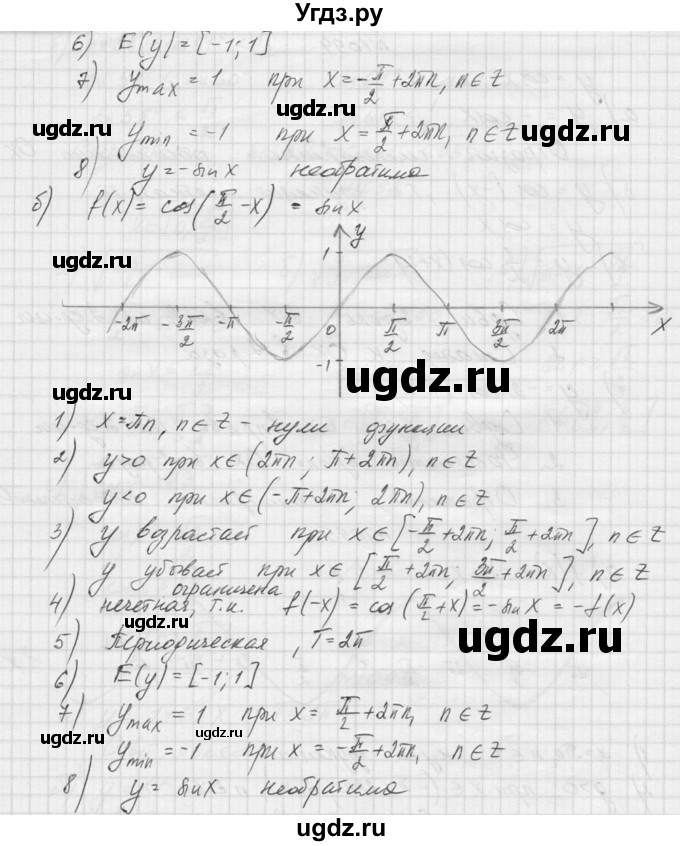 Угдз.ру
6) E(y) = [-1; 1]
7) y max = 1 при x = -π/2 + 2πn, n ∈ Z
uдgz.ru
y min = -1 при x = π/2 + 2πn, n ∈ Z
8) y = -sin x необратима
б) f(x) = cos(π/2 - x) = sin x
y
1
-2π -3π/2 -π -π/2 0 π/2 π 3π/2 2π x
-1
1) x = πn, n ∈ Z - нули функции
2) y>0 при x ∈ (2πn; π+2πn), n ∈ Z
y<0 при x ∈ (-π+2πn; 2πn), n ∈ Z
3) y возрастает при x ∈ [-π/2 + 2πn; π/2 + 2πn], n ∈ Z
y убывает при x ∈ [π/2 + 2πn; 3π/2 + 2πn], n ∈ Z
ограничена
4) нечетная, т.к. f(-x) = cos(π/2 + x) = -sin x = -f(x)
5) Периодическая, T = 2π
6) E(y) = [-1; 1]
7) y max = 1 при x = π/2 + 2πn, n ∈ Z
y min = -1 при x = -π/2 + 2πn, n ∈ Z
8) y = sin x необратима
ugdz.ru